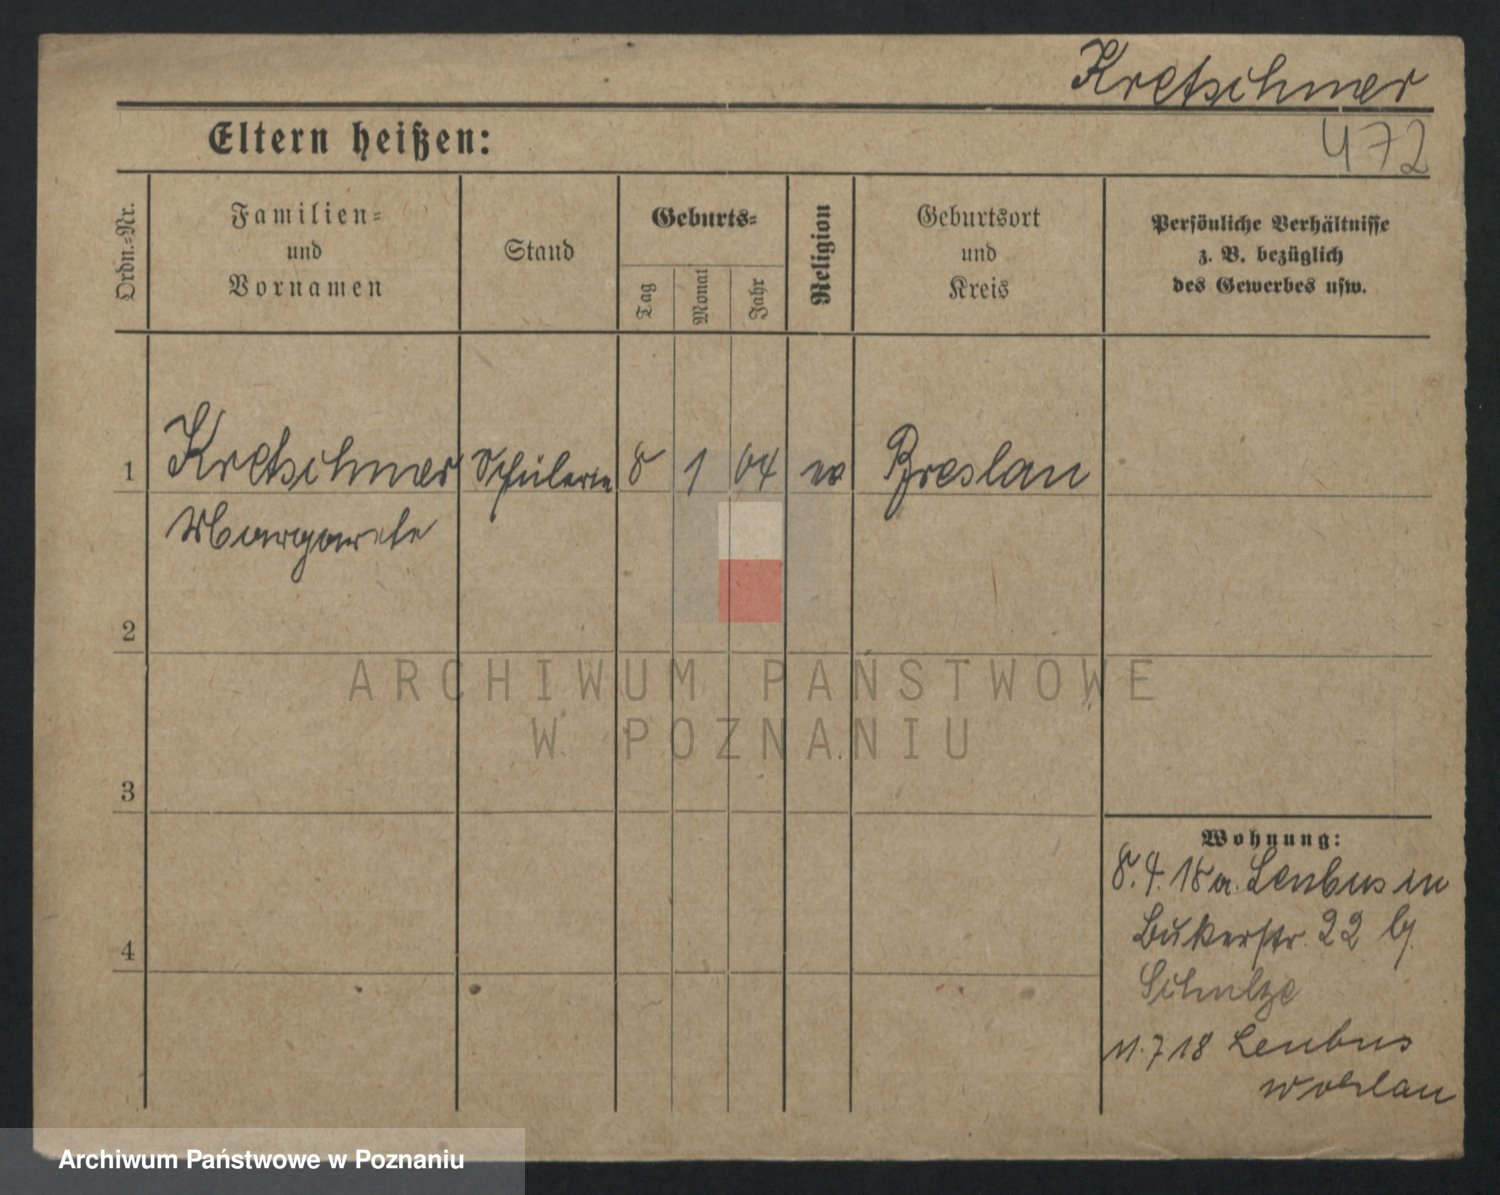 Kretschmer
472
Eltern heißen:
Ordn.-Nr.
Familien-
und
Vornamen
Stand
Geburts-
Tag
Monat
Jahr
Religion
Geburtsort
und
Kreis
Persönliche Verhältnisse
z. B. bezüglich
des Gewerbes usw.
1 Kretschmer Schülerin 8 1 04 ev Breslau
Margarete
2
3
4
ARCHIWUM PAŃSTWOWE
W POZNANIU
Wohnung:
8. 4. 18 a. Leubus in
Bukerstr. 22 bj.
Schulze
11. 7 18 Leubus
Wohlau
Archiwum Państwowe w Poznaniu